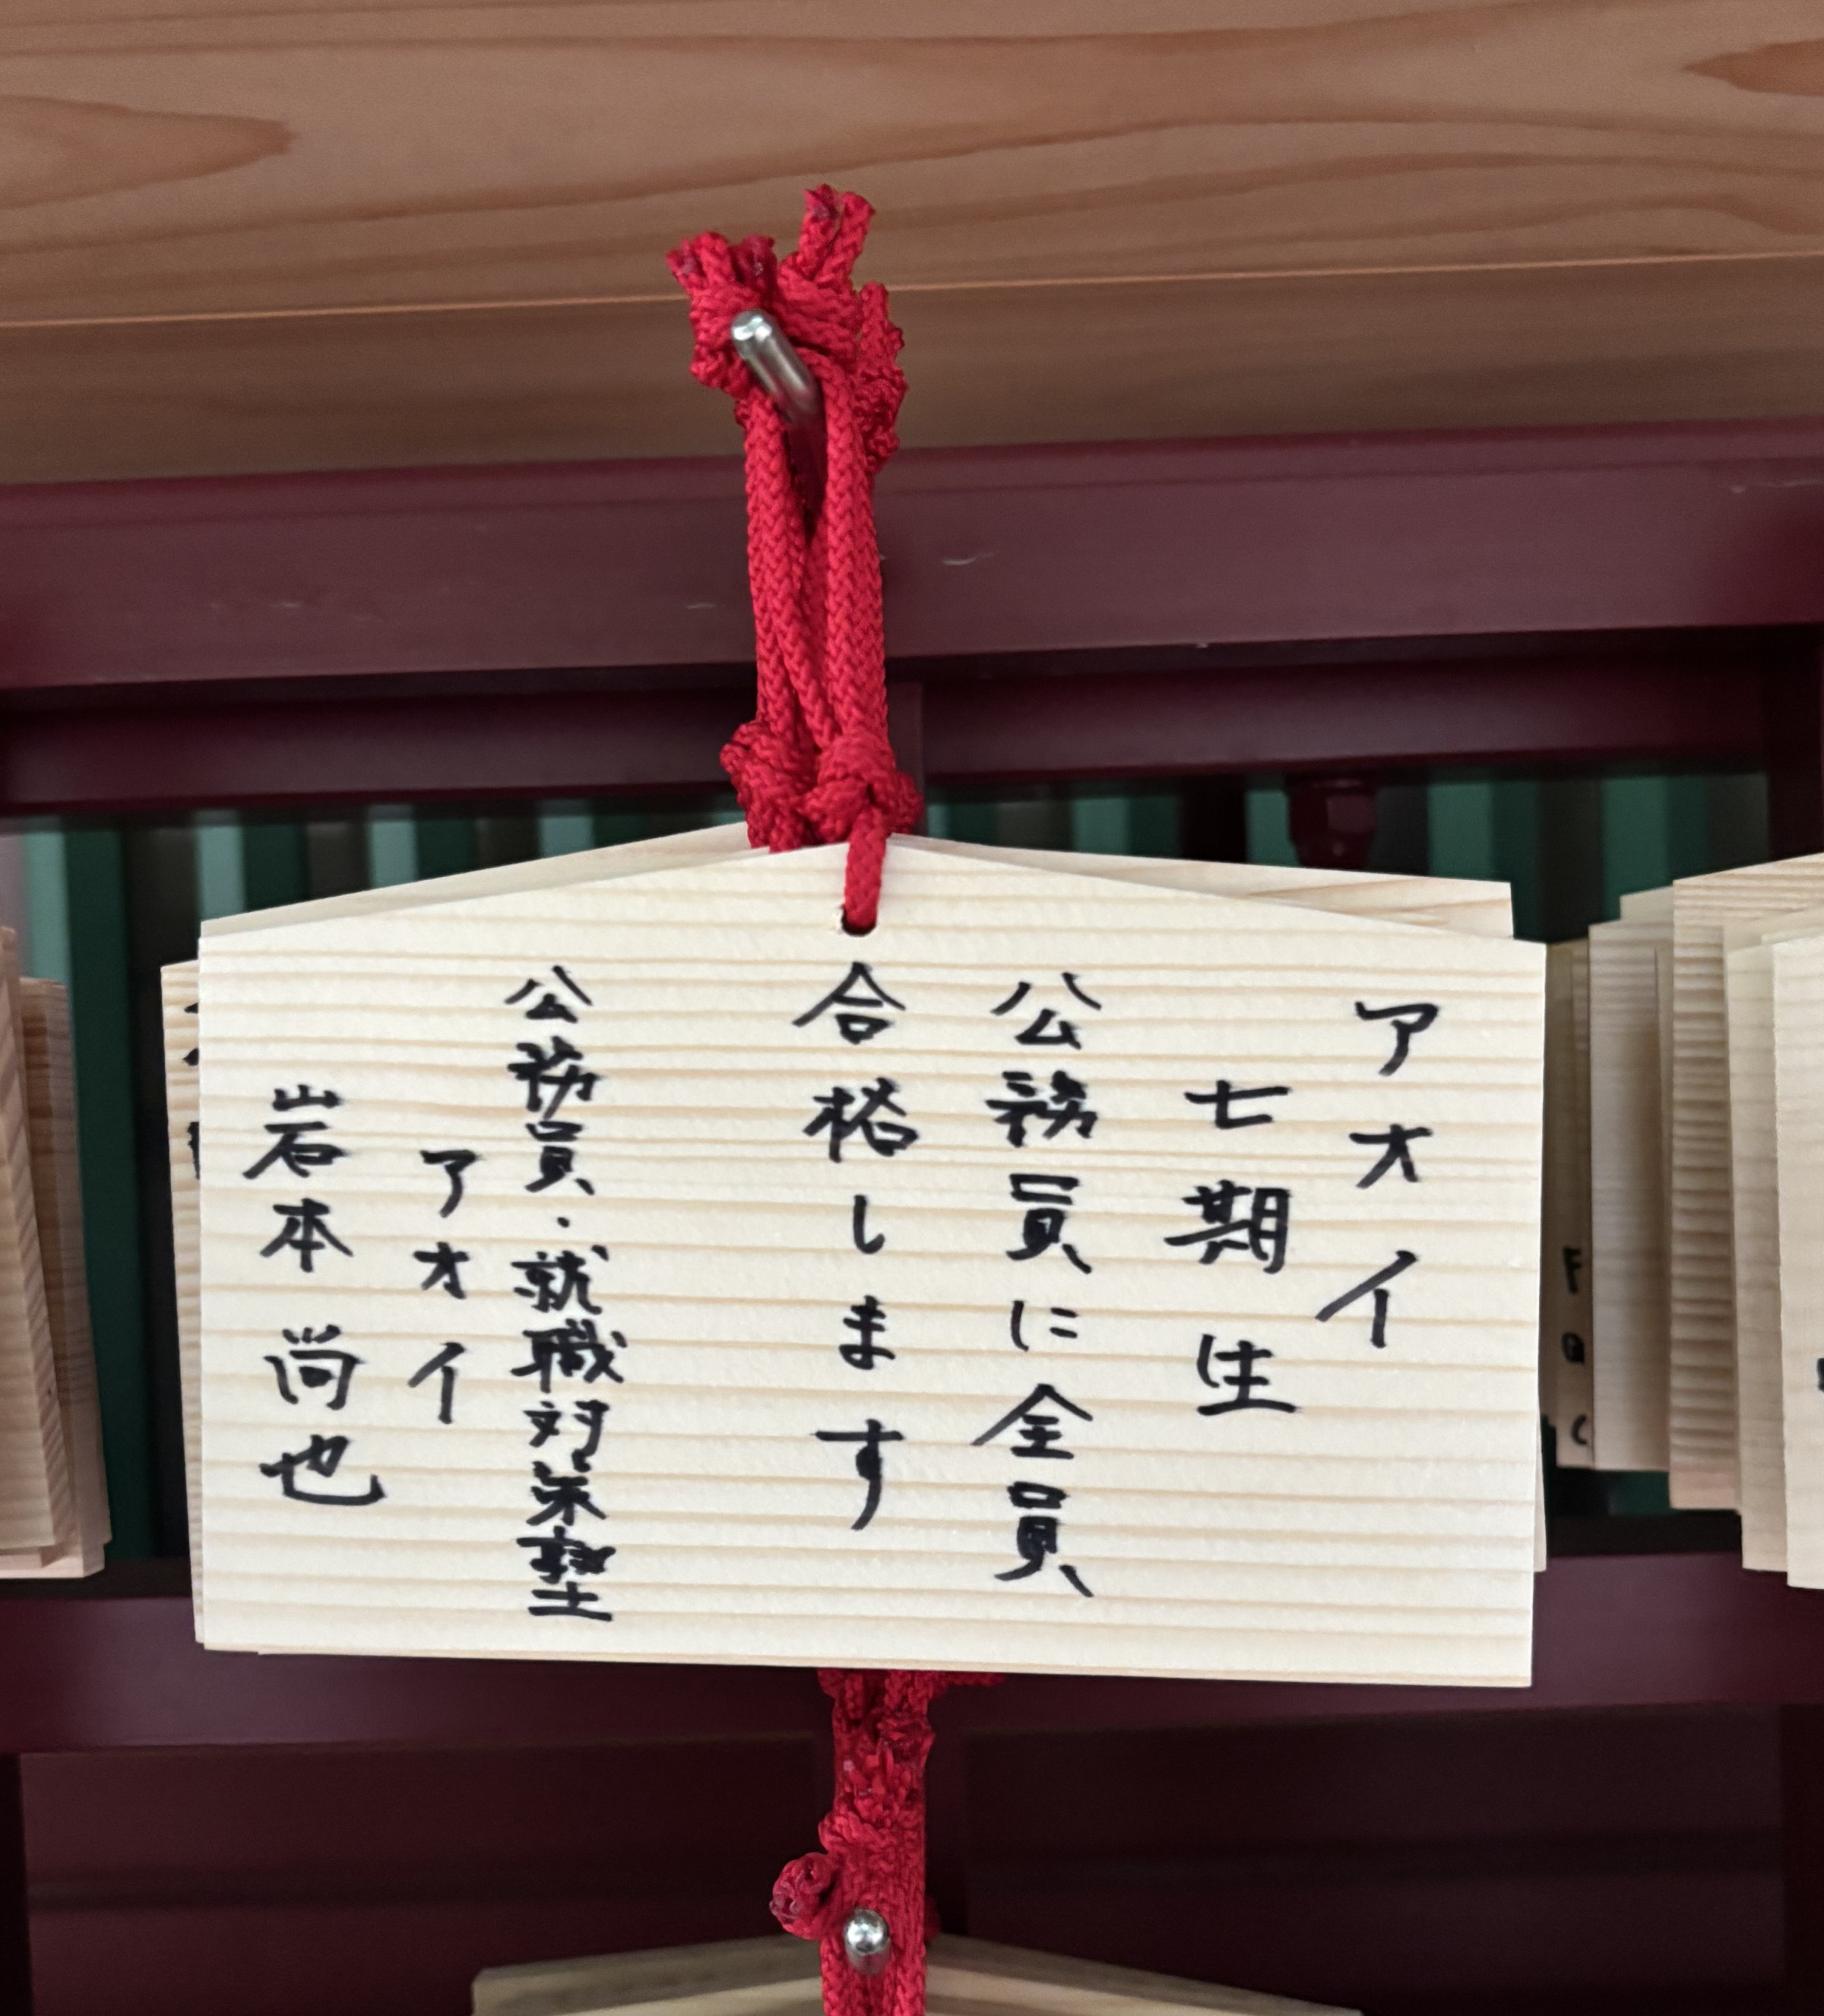 アオイ
七期生
公務員に全員
合格します
公務員・就職対策塾
アオイ
岩本尚也